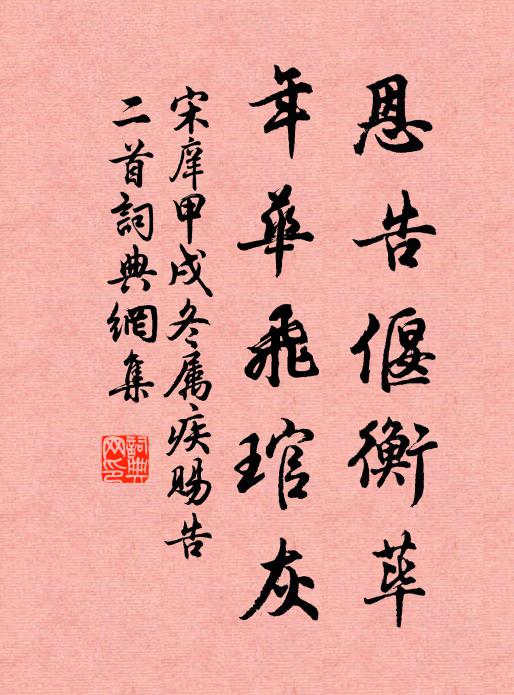 恩告偃衡荜
年华飛琯灰
宋庠甲戌冬属疾賜告
二首詞典網集
詞典網印